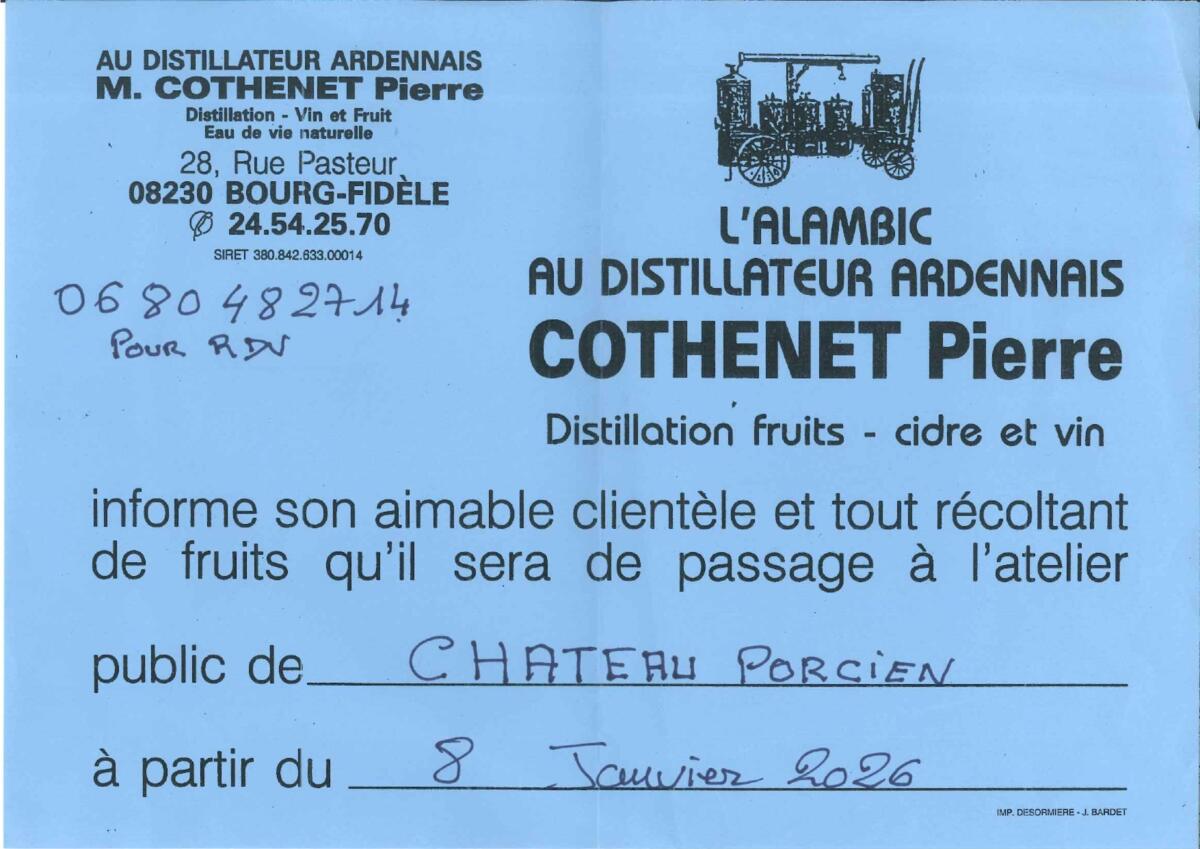 AU DISTILLATEUR ARDENNAIS
M. COTHENET Pierre
Distillation - Vin et Fruit
Eau de vie naturelle
28, Rue Pasteur
08230 BOURG-FIDÈLE
24.54.25.70
SIRET 380.842.633.00014
06 80 48 27 14
POUR RDV
L'ALAMBIC
AU DISTILLATEUR ARDENNAIS
COTHENET Pierre
Distillation fruits - cidre et vin
informe son aimable clientèle et tout récoltant
de fruits qu'il sera de passage à l'atelier
public de CHATEAU PORCIEN
à partir du 8 Janvier 2026
IMP. DESORMIERE - J. BARDET